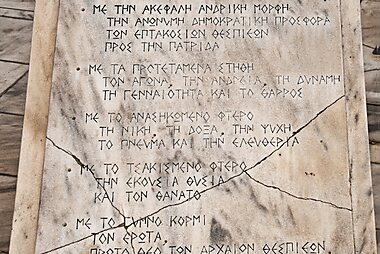 • ΜΕ ΤΗΝ ΑΚΕΦΑΛΗ ΑΝΔΡΙΚΗ ΜΟΡΦΗ
ΤΗΝ ΑΝΩΝΥΜΗ ΔΗΜΟΚΡΑΤΙΚΗ ΠΡΟΣΦΟΡΑ
ΤΩΝ ΕΠΤΑΚΟΣΙΩΝ ΘΕΣΠΙΕΩΝ
ΠΡΟΣ ΤΗΝ ΠΑΤΡΙΔΑ
• ΜΕ ΤΑ ΠΡΟΤΕΤΑΜΕΝΑ ΣΤΗΘΗ
ΤΟΝ ΑΓΩΝΑ, ΤΗΝ ΑΝΔΡΕΙΑ, ΤΗ ΔΥΝΑΜΗ
ΤΗ ΓΕΝΝΑΙΟΤΗΤΑ ΚΑΙ ΤΟ ΘΑΡΡΟΣ
• ΜΕ ΤΟ ΑΝΑΣΗΚΩΜΕΝΟ ΦΤΕΡΟ
ΤΗ ΝΙΚΗ, ΤΗ ΔΟΞΑ, ΤΗΝ ΨΥΧΗ
ΤΟ ΠΝΕΥΜΑ ΚΑΙ ΤΗΝ ΕΛΕΥΘΕΡΙΑ
• ΜΕ ΤΟ ΤΣΑΚΙΣΜΕΝΟ ΦΤΕΡΟ
ΤΗΝ ΕΚΟΥΣΙΑ ΘΥΣΙΑ
ΚΑΙ ΤΟΝ ΘΑΝΑΤΟ
• ΜΕ ΤΟ ΓΥΜΝΟ ΚΟΡΜΙ
ΤΟΝ ΕΡΩΤΑ,
ΠΡΩΤΟ ΘΕΟ ΤΩΝ ΑΡΧΑΙΩΝ ΘΕΣΠΙΕΩΝ